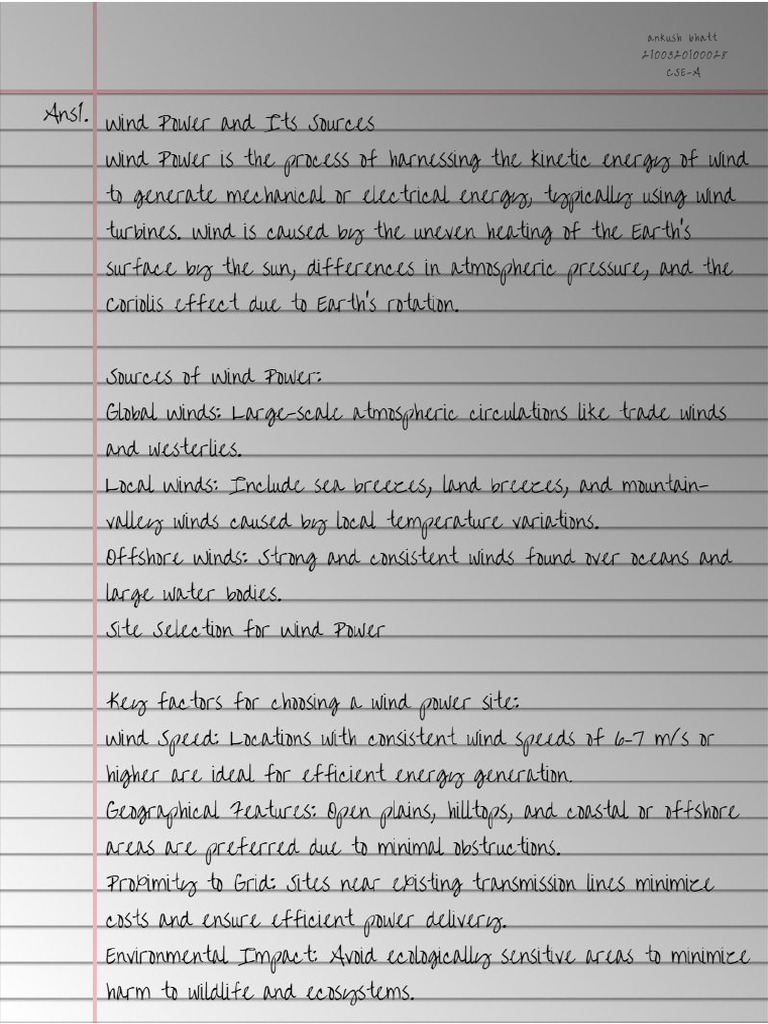 ankush bhatt
2100320100028
CSE-A
Ans1.
Wind Power and Its Sources
Wind Power is the process of harnessing the kinetic energy of wind
to generate mechanical or electrical energy, typically using wind
turbines. Wind is caused by the uneven heating of the Earth's
surface by the sun, differences in atmospheric pressure, and the
Coriolis effect due to Earth's rotation.
Sources of Wind Power:
Global Winds: Large-scale atmospheric circulations like trade winds
and westerlies.
Local Winds: Include sea breezes, land breezes, and mountain-
valley winds caused by local temperature variations.
Offshore Winds: Strong and consistent winds found over oceans and
large water bodies.
Site Selection for Wind Power
Key factors for choosing a wind power site:
Wind Speed: Locations with consistent wind speeds of 6-7 m/s or
higher are ideal for efficient energy generation.
Geographical Features: Open plains, hilltops, and coastal or offshore
areas are preferred due to minimal obstructions.
Proximity to Grid: Sites near existing transmission lines minimize
costs and ensure efficient power delivery.
Environmental Impact: Avoid ecologically sensitive areas to minimize
harm to wildlife and ecosystems.